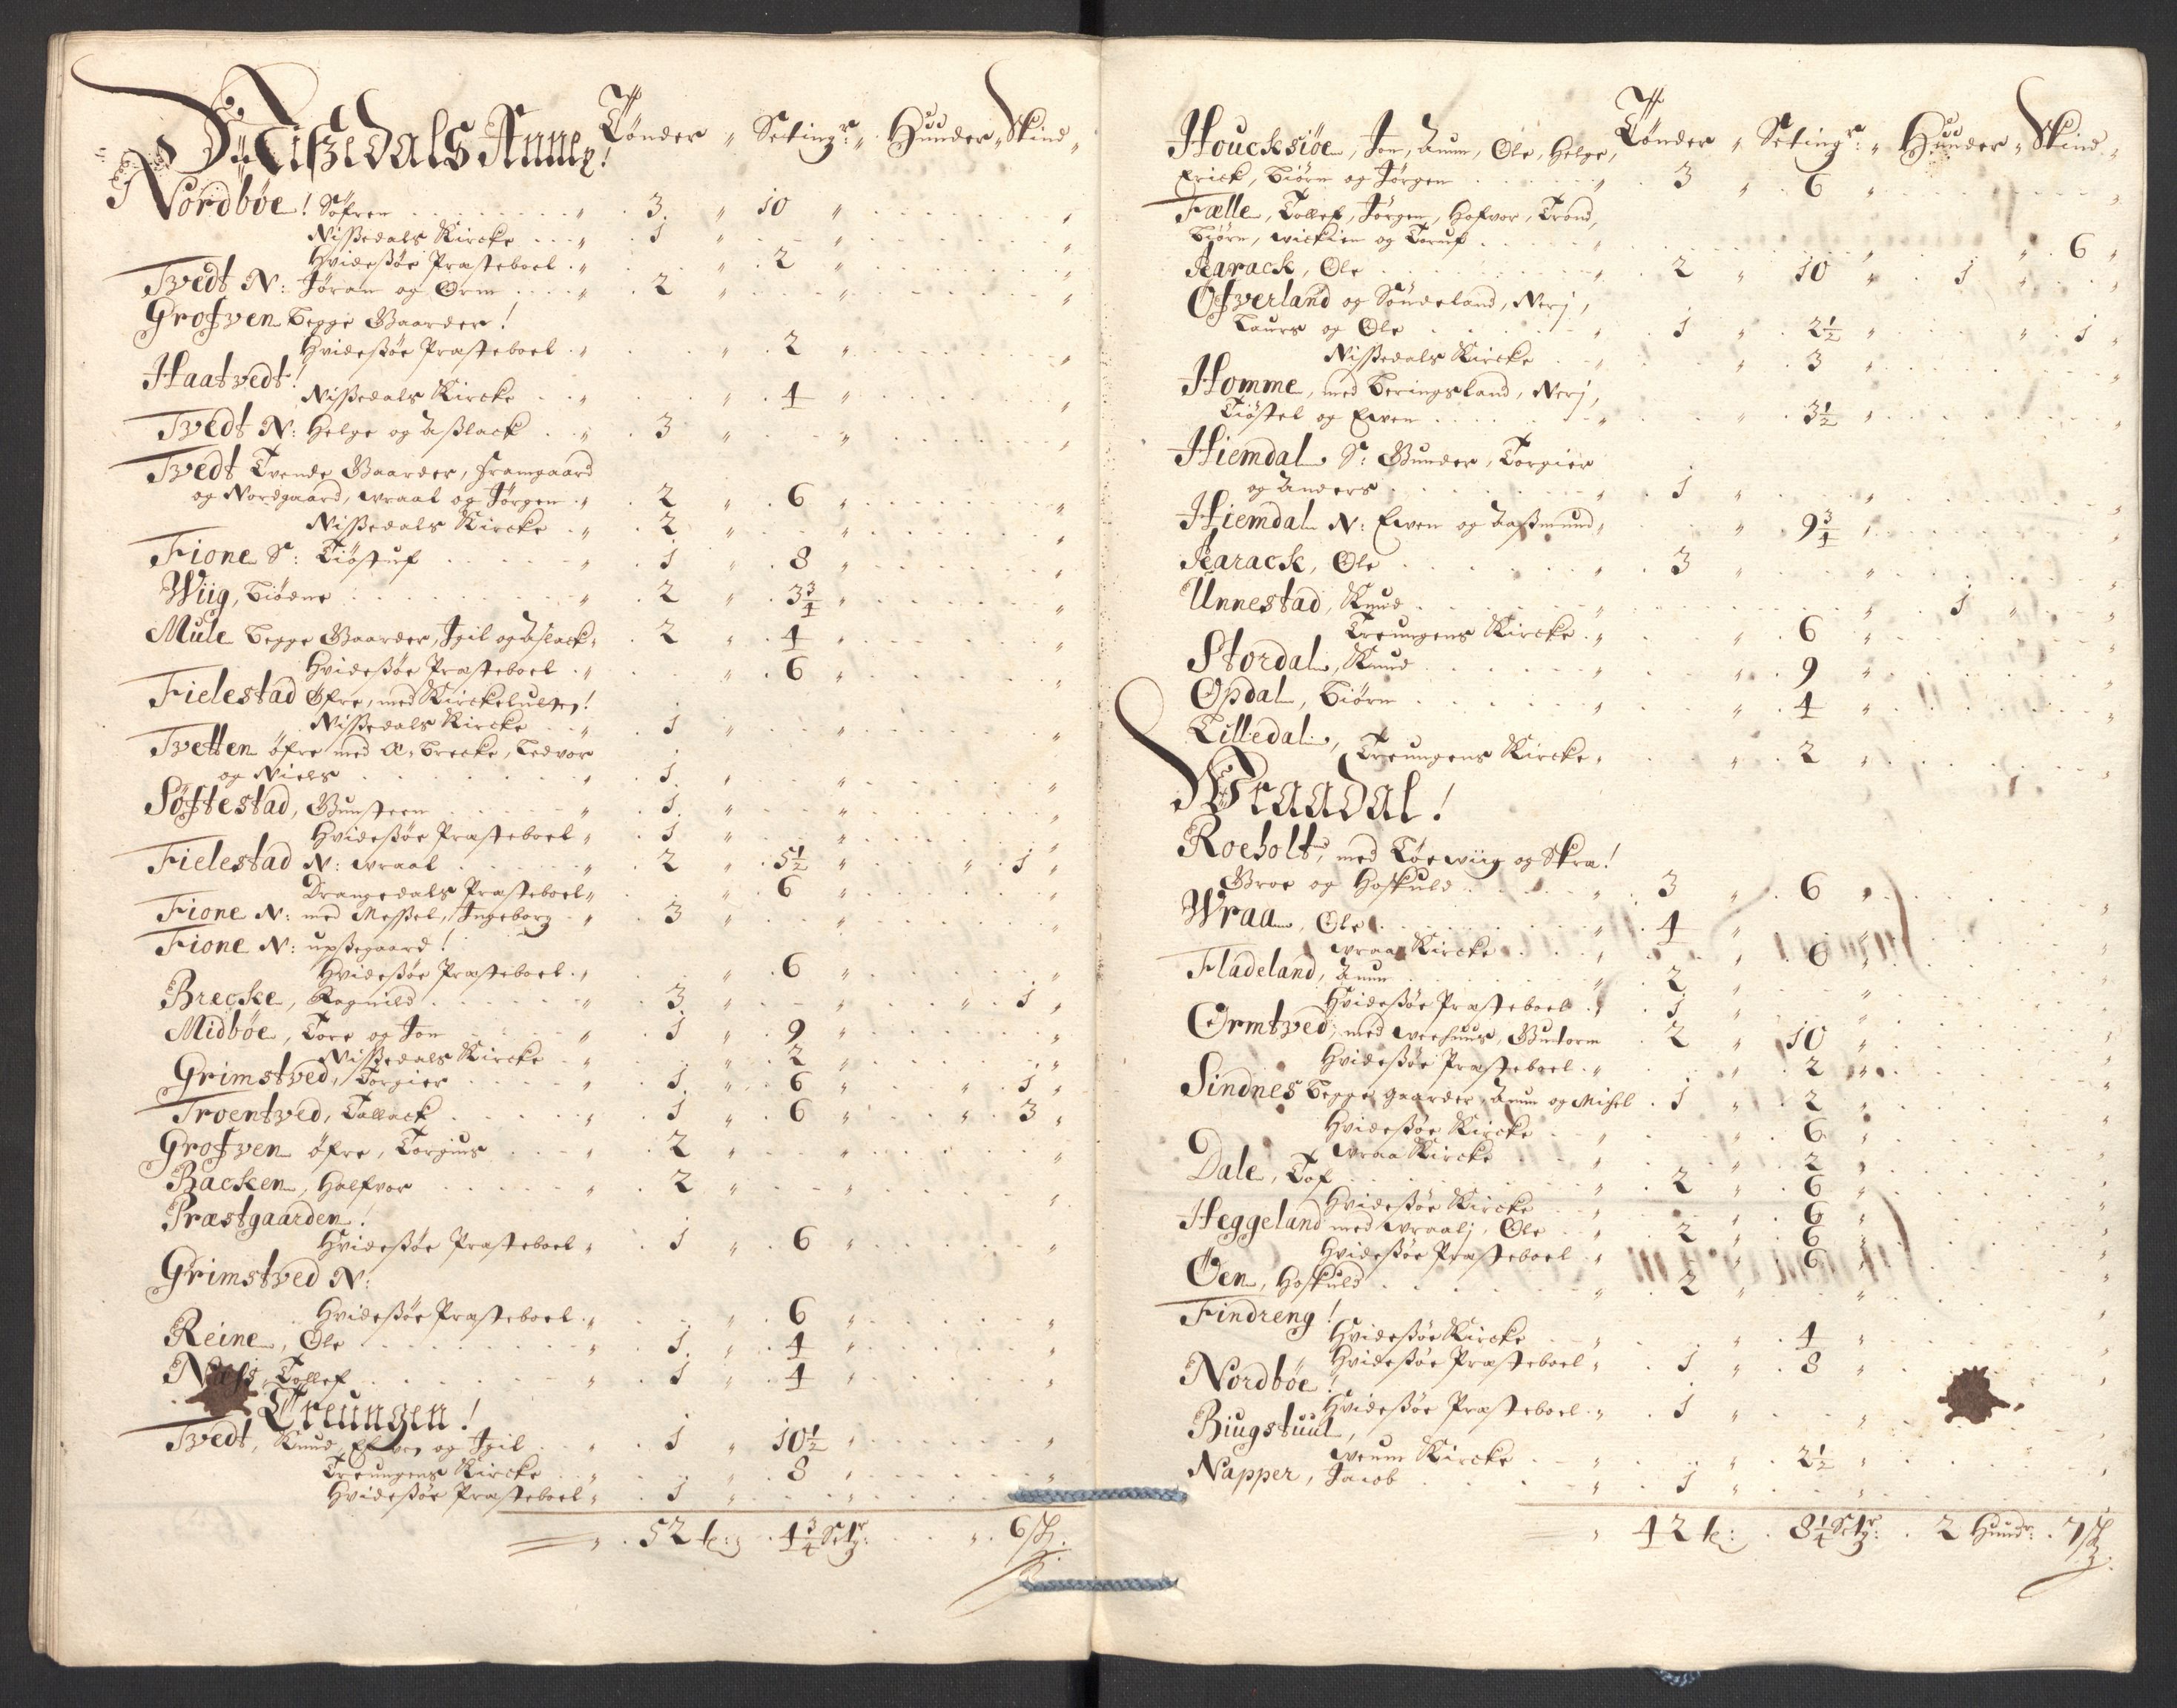 Nißedals Annex! Tønder „ Setingr: „ Hunder „ Skind „
Nordbøe! Søfren . . . „ 3 „ 10 „
Nißedals Kircke . . . „ 1 „
Hvideßøe Præsteboel . „ „ 2 „
Tvedt N: Jøran og Orm . . . „ 2 „
Grofven begge Gaarder!
Hvideßøe Præsteboel . „ „ 2 „
Haatvedt!
Nißedals Kircke . . „ „ 4 „
Tvedt N: Helge og Aßlack . . „ 3 „
Tvedt Tvende Gaarder, framgaard
og Nordgaard, wraal og Jørgen . „ 2 „ 6 „
Nißedals Kircke . „ 2 „
Fione S: Tiøstuf . . . „ 1 „ 8 „
Wiig, Biødne . . . „ 2 „ 3¾ „
Mule begge Gaarder, Igil og Aslack „ 2 „ 4 „
Hvideßøe Præsteboel . „ „ 6 „
Fielestad øfre, med Kirckelulten!
Nißedals Kircke . . „ 1 „
Tvetten øfre med A. Brecke, Ledvor
og Niels . . . „ 1 „
Søftestad, Gunsteen . . . „ 1 „
Hvideßøe Præsteboel „ 1 „
Fielestad N: wraal . . . „ 2 „ 5½ „ „ 1 „
Drangedals Præsteboel „ „ 6 „
Fione N: med Meßel, Ingeborg . „ 3 „
Fione N: upsegaard!
Hvideßøe Præsteboel . „ „ 6 „
Brecke, Ragnild . . . „ 3 „ „ 1 „
Midbøe, Tore og Jon . . . „ 1 „ 9 „
Nißedals Kircke . „ „ 2 „
Grimstved, Torgier . . . „ 1 „ 6 „ „ 1 „
Troentved, Tallack . . . „ 1 „ 6 „ „ 3 „
Grofven øfre, Torgius . . . „ 2 „
Backen, Halfvor . . . „ 2 „
Præstgaarden!
Hvideßøe Præsteboel „ 1 „ 6 „
Grimstved N:
Hvideßøe Præsteboel . „ „ 6 „
Reine, Ole . . . „ 1 „ 4 „
Næss, Tollef . . . „ 1 „ 4 „
Treungen!
Tvedt, Knud, Efven og Igil . . „ 1 „ 10½ „
Treungens Kircke . . „ „ 8 „
Hvideßøe Præsteboel „ 1 „
„ 52 t: „ 4¾ Setgr: „ 6 sk:
Houcksiøe, Jon, Aanun, Ole, Helge, Tønder „ Setingr: „ Hunder „ Skind „
Erick, Biørn og Jørgen . . . „ 3 „ 6 „
Fælle, Tollef, Jørgen, Hafvor, Trond,
Biørn, wickien og Toruf . . . „ „ 6 „
Rarack, Ole . . . „ 2 „ 10 „ 1 „
Ofverland og Sønderland, Nerj,
Laurs og Ole . . . „ 1 „ 2½ „ „ 1 „
Nißedals Kircke . . „ „ 3 „
Homme, med Beringsland, Nerj,
Tiøstel og Even . . . „ „ 3½ „
Hiemdal S: Gunder, Torgier
og Anders . . . „ 1 „
Hiemdal N: Even og Aaßmund „ „ 9¾ „
Rarack, Ole . . . „ 3 „
Unnestad, Knud . . . „ „ 1 „
Treungens Kircke . „ „ 6 „
Stordal, Knud . . . „ „ 9 „
Opdal, Biørn . . . „ „ 4 „
Lilledal,
Treungens Kircke „ „ 2 „
Wraadal!
Roeholt, med Løewiig og Skra!
Groe og Hoskuld . . . „ 3 „ 6 „
Wraa, Ole . . . „ 4 „
wraa Kircke . . . „ „ 6 „
Fladeland, Aanun . . . „ 2 „
Hvideßøe Præsteboel . „ 1 „
Ormtved, med weehuus, Guttorm 2 „ 10 „
Hvideßøe Præsteboel . „ „ 2 „
Sindnes begge gaarder, Aanun og Michel . 1 „ 2 „
Hvideßøe Kircke . . „ „ 6 „
wraa Kircke . . „ „ 2 „
Dale, Tof . . . „ 2 „ 6 „
Hvideßøe Kircke . . „ „ 6 „
Heggeland med wraalj, Ole . . „ 2 „ 6 „
Hvideßøe Præsteboel . „ „ 6 „
Øen, Hoskuld . . . „ 2 „
Findreng!
Hvideßøe Kircke . . „ „ 4 „
Hvideßøe Præsteboel „ 1 „ 8 „
Nordbøe!
Hvideßøe Præsteboel . „ 1 „
Biugstuul,
weum Kircke . . „ „ 2½ „
Napper, Jacob . . . „ 1 „
„ 42 t: . 8¼ Setgr: . 2 Hundr: . 7 sk: